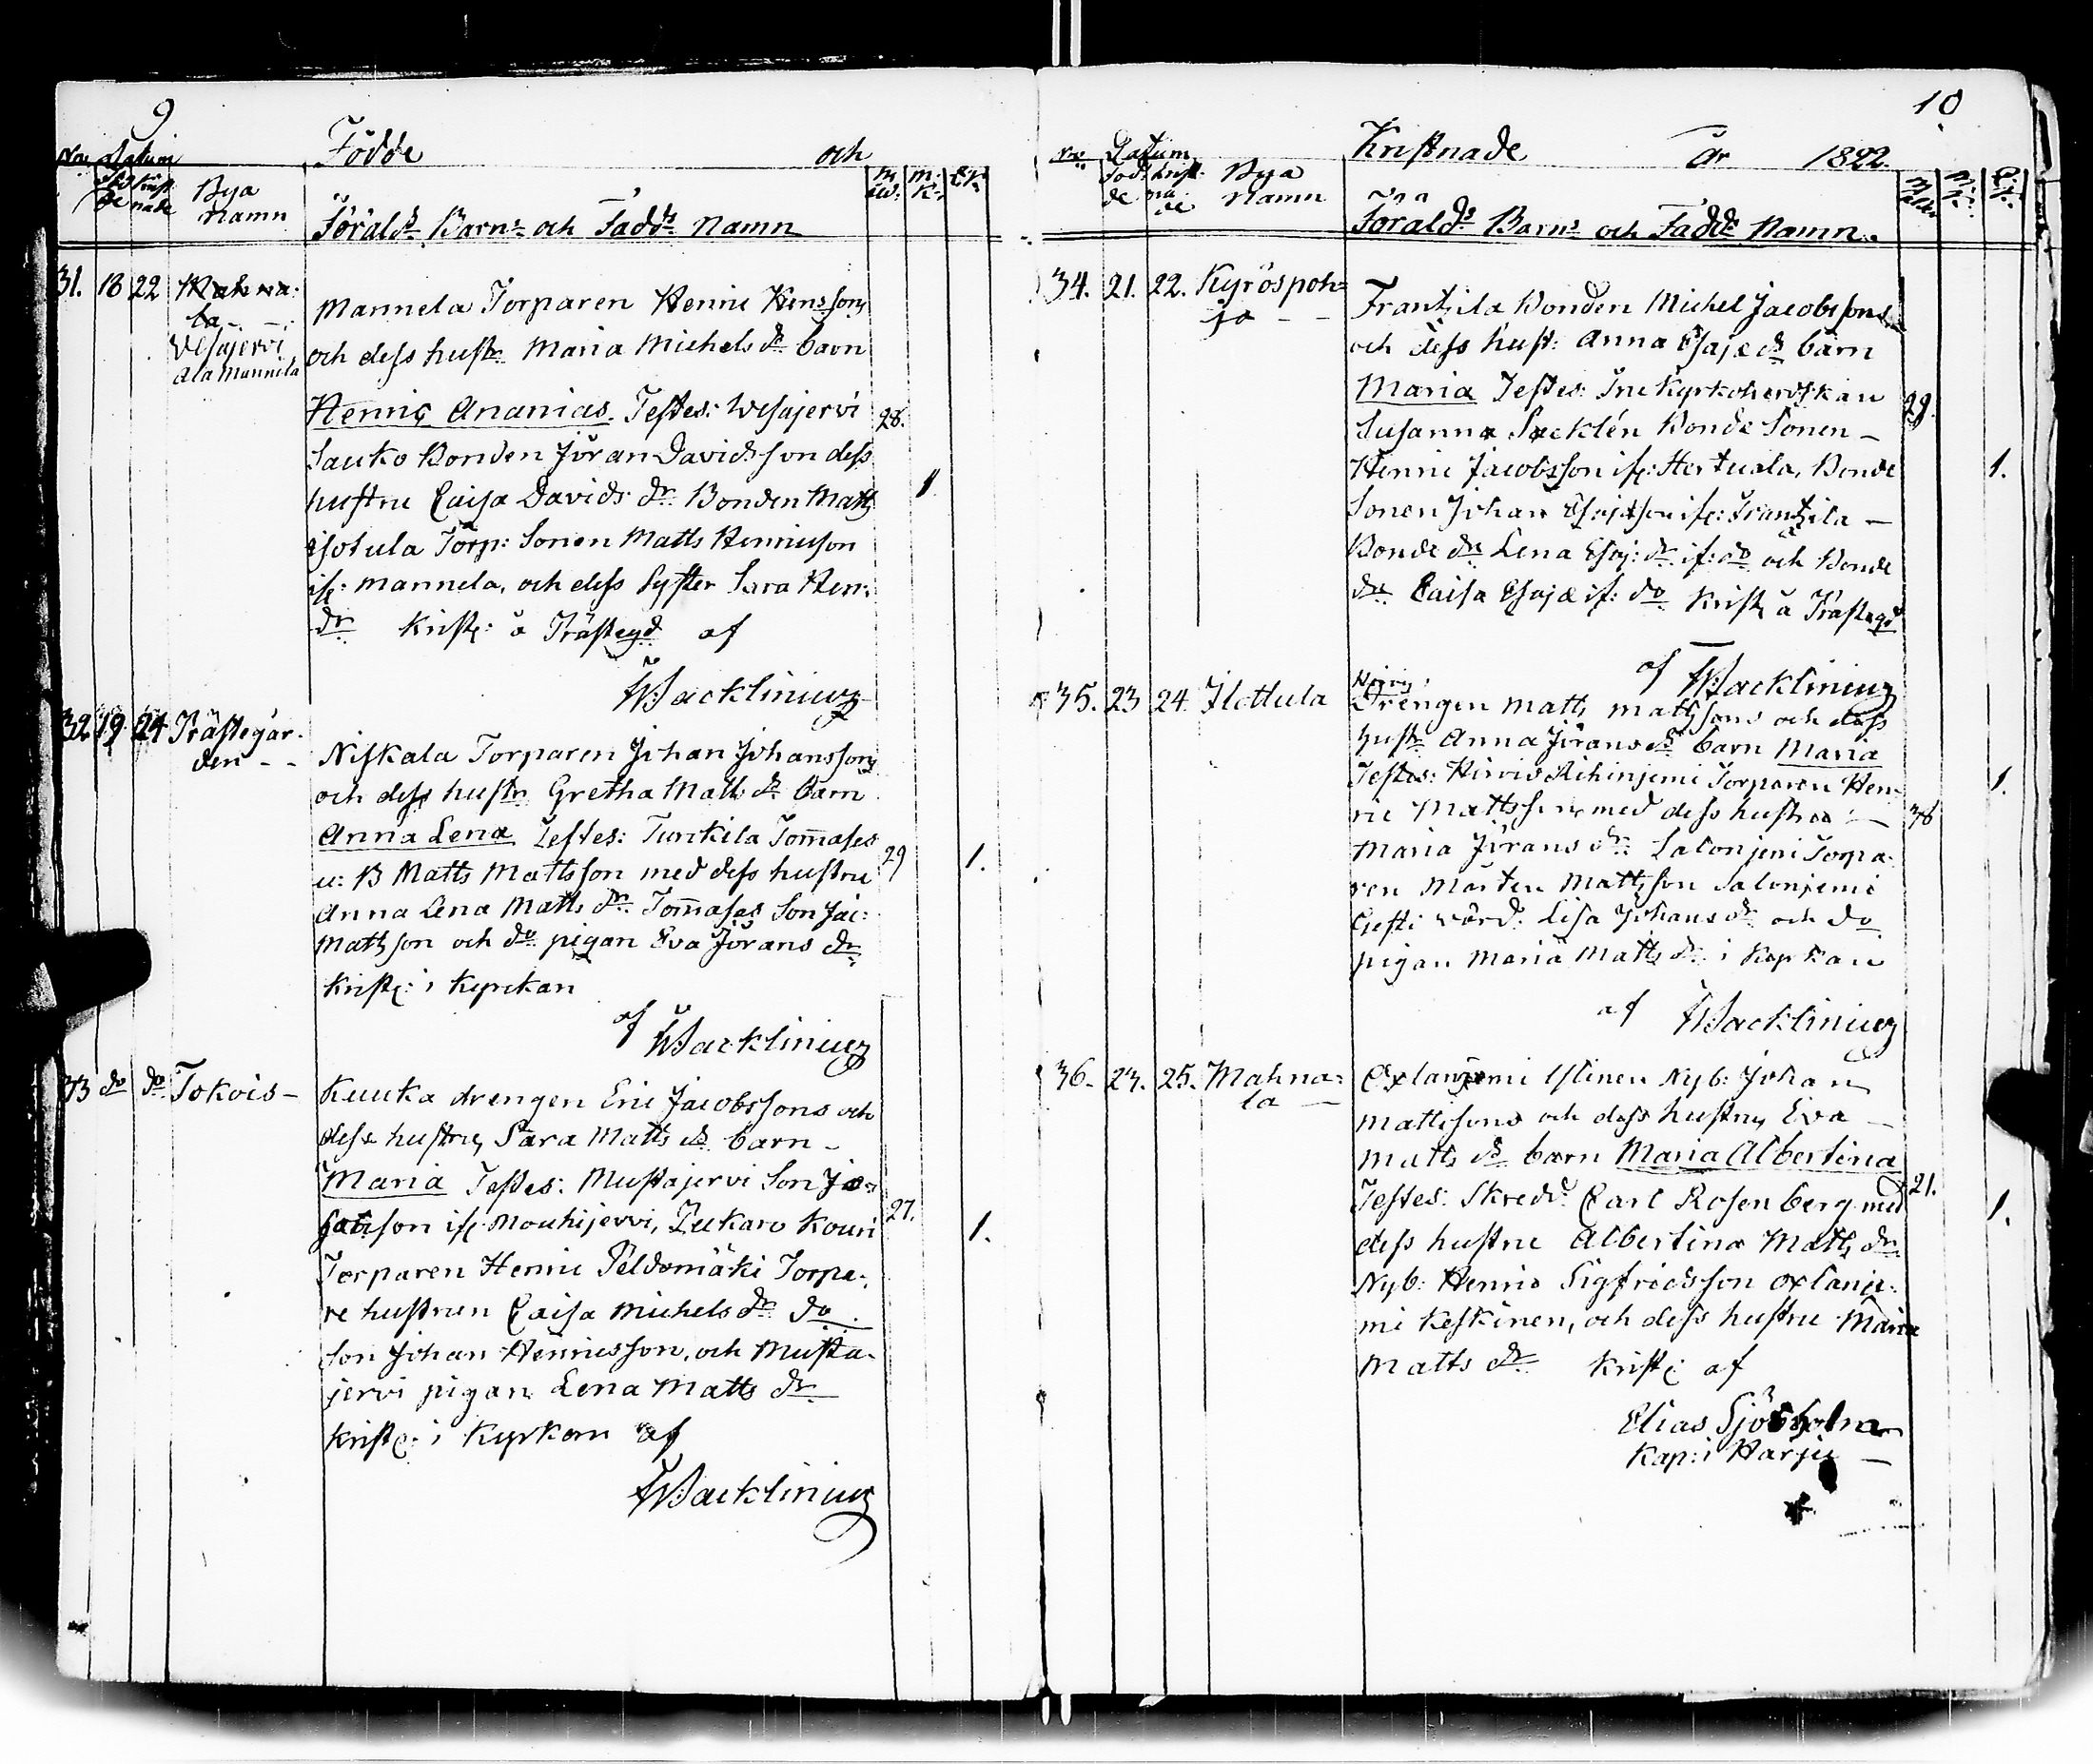 9
Födde och
No Datum
Föd de Krist nade
Bya Namn
Förälds. Barns. och Fadds. Namn
M. äld. M. K. Q. K.
31. 18 22 Mahna-
la
Vesajervi
ala Mannila
Mannela Torparen Henric Henssons
och dess hustr. Maria Michels dr. barn
Henric Ananias. Testes: Wesajervi 28.
Sauko Bonden Jöran Davidsson dess
hustru Caisa Davids dr. Bonden Matts 1
Isotula Torp: Sonen Matts Henricsson
if: Mannela, och dess Syster Sara Hen:
dr. Krist: å Prästegd af
Wacklinius
32 19 24 Prästegår-
den - -
Niskala Torparen Johan Johanssons
och dess hustr. Gretha Matts dr. barn
Anna Lena Testes: Turckila Tomases
u: B Matts Mattsson med dess hustru 29 1.
Anna Lena Matts dr. Tomases Son Jac:
Mattsson och do pigan Eva Jörans dr.
Krist: i Kyrckan
af Wacklinius
33 do do Tokois -
Kuuka drengen Eric Jacobssons och
dess hustru, Sara Matts dr. barn -
Maria Testes: Mustajervi Son Ja-
cobsson if: Mouhijervi, Kouri 27. 1.
Torparen Henric Peldomäki Torpa-
re hustrun Caisa Michels dr. do
Son Johan Henricsson, och Musta-
jervi pigan Lena Matts dr.
Krist: i Kyrkan af
Wacklinius
10
Kristnade År 1822
No Datum
Föd de Krist na de
Bya Namn
Förälds. Barns. och Fadds. Namn.
34. 21. 22. Kyröspoh-
ja - -
Frantzila Bonden Michel Jacobssons
och dess hust: Anna Esajæ dr. barn
Maria Testes: Fru Kyrkoherdskan 29.
Susanna Bonde Sonen -
Henric Jacobsson if: Hertuala, Bonde 1.
Sonen Johan Esajæson if: Frantzila -
Bonde dr. Lena Esaj: dr. if: do och Bonde
dr. Caisa Esajæ if: do Krist å Prästegd
af Wacklinius
35. 23 24 Jlottula
Hirvis
Drengen Matts Mattssons och dess
hustr. Anna Jörans dr. barn Maria
Testes: Hirvis Torparen Hen- 1.
ric Mattsson, med dess hustru - 38
Maria Jörans dr. Salonjemi Torpa-
ren Mårten Mattsson Salonjemi
Gesti värd. Lisa Johans dr. och do
pigan Maria Matts dr. i Kyrkan
af Wacklinius
36. 23. 25. Mahna-
la -
Oxlanjemi Nyb: Johan
Mattssons och dess hustru, Eva -
Matts dr. barn Maria Albertina
Testes: Skredd. Carl Rosenberg med 21.
dess hustru Albertina Matts dr. 1.
Nyb: Henric Sigfridsson Oxlanje-
mi Keskinen, och dess hustru Maria
Matts dr. Krist: af
Elias Sjöholm
Kap: i Harju -